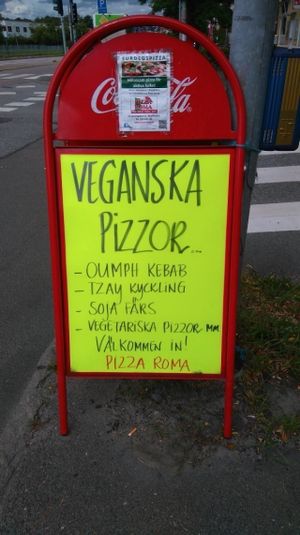 SURDEGSPIZZA
Coca-Cola
ROMA
VEGANSKA
PIZZOR
- OUMPH KEBAB
- TZAY KYCKLING
- SOJA FÄRS
- VEGETARISKA PIZZOR MM.
VÄLKOMMEN IN!
PIZZA ROMA